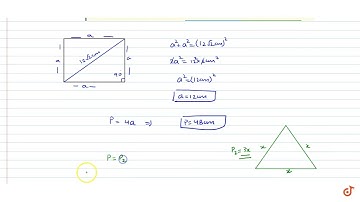 a
a
12√2cm
a
90
a
a² + a² = (12√2cm)²
2a² = 12² × 2cm²
a² = (12cm)²
a = 12cm
P = 4a ⇒ P = 48cm
P₂ = 3x
x
x
x
P = P₂